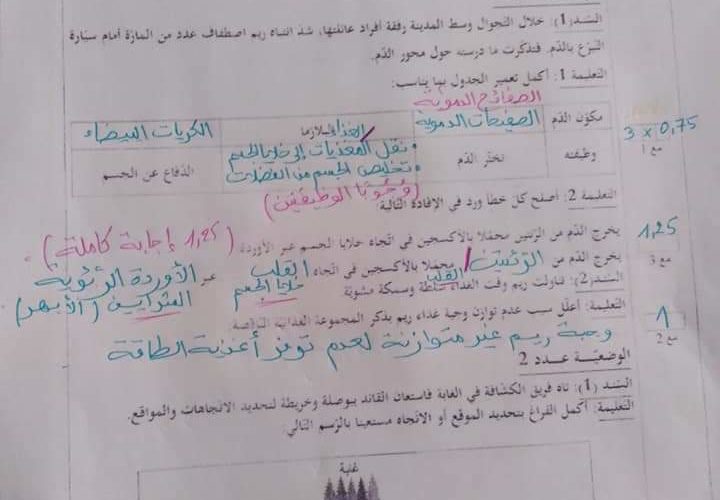 السّند(1): خلال التّجوال وسط المدينة رفقة أفراد عائلتها، شدّ انتباه ريم اصطفاف عدد من المارّة أمام سيّارة
التّبرّع بالدّم. فتذكّرت ما درسته حول محور الدّم.
التّعليمة 1: أكمل تعمير الجدول بما يناسب:
الصفائح الدموية
مكوّن الدّم الصفيحات الدموية البلازما الكريات البيضاء
وظيفته تخثّر الدّم • نقل المغذيات إلى خلايا الجسم الدّفاع عن الجسم
• تخليص الجسم من الفضلات
(وجوبا الوظيفتين)
3 × 0,75
مع 1
التّعليمة 2: أصلح كلّ خطأ ورد في الإفادة التّالية:
يخرج الدّم من الرّئتين محمّلا بالأكسجين في اتّجاه خلايا الجسم عبر الأوردة (1,25 إجابة كاملة)
يخرج الدّم من الرئتين / القلب محمّلا بالأكسجين في اتّجاه القلب / خلايا الجسم عبر الأوردة الرئوية / الشرايين (الأبهر)
1,25
مع 3
السّند(2): تناولت ريم وقت الغداء سلطة وسمكة مشويّة
التّعليمة: أعلّل سبب عدم توازن وجبة غداء ريم بذكر المجموعة الغذائيّة المنقوصة.
وجبة ريم غير متوازنة لعدم توفر أغذية الطاقة
1
مع 2
الوضعيّة عدد 2
السّند (1): تاه فريق الكشّافة في الغابة فاستعان القائد ببوصلة وخريطة لتحديد الاتّجاهات والمواقع.
التّعليمة: أكمل الفراغ بتحديد الموقع أو الاتّجاه مستعينا بالرّسم التّالي:
غابة